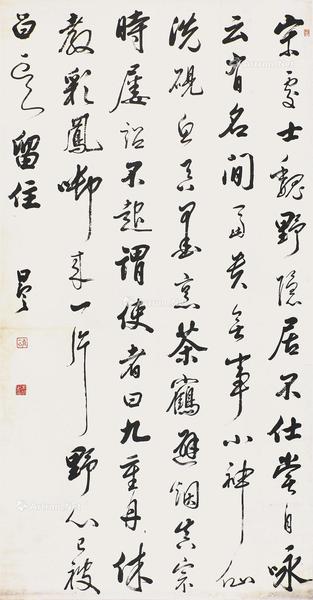 宋處士魏野隱居不仕嘗自咏
云有名閒富貴無事小神仙
洗硯魚吞墨烹茶鶴避烟真宗
時屢詔不起謂使者曰九重丹休
教彩鳳啣來一片野心已被
白雲留住
昇